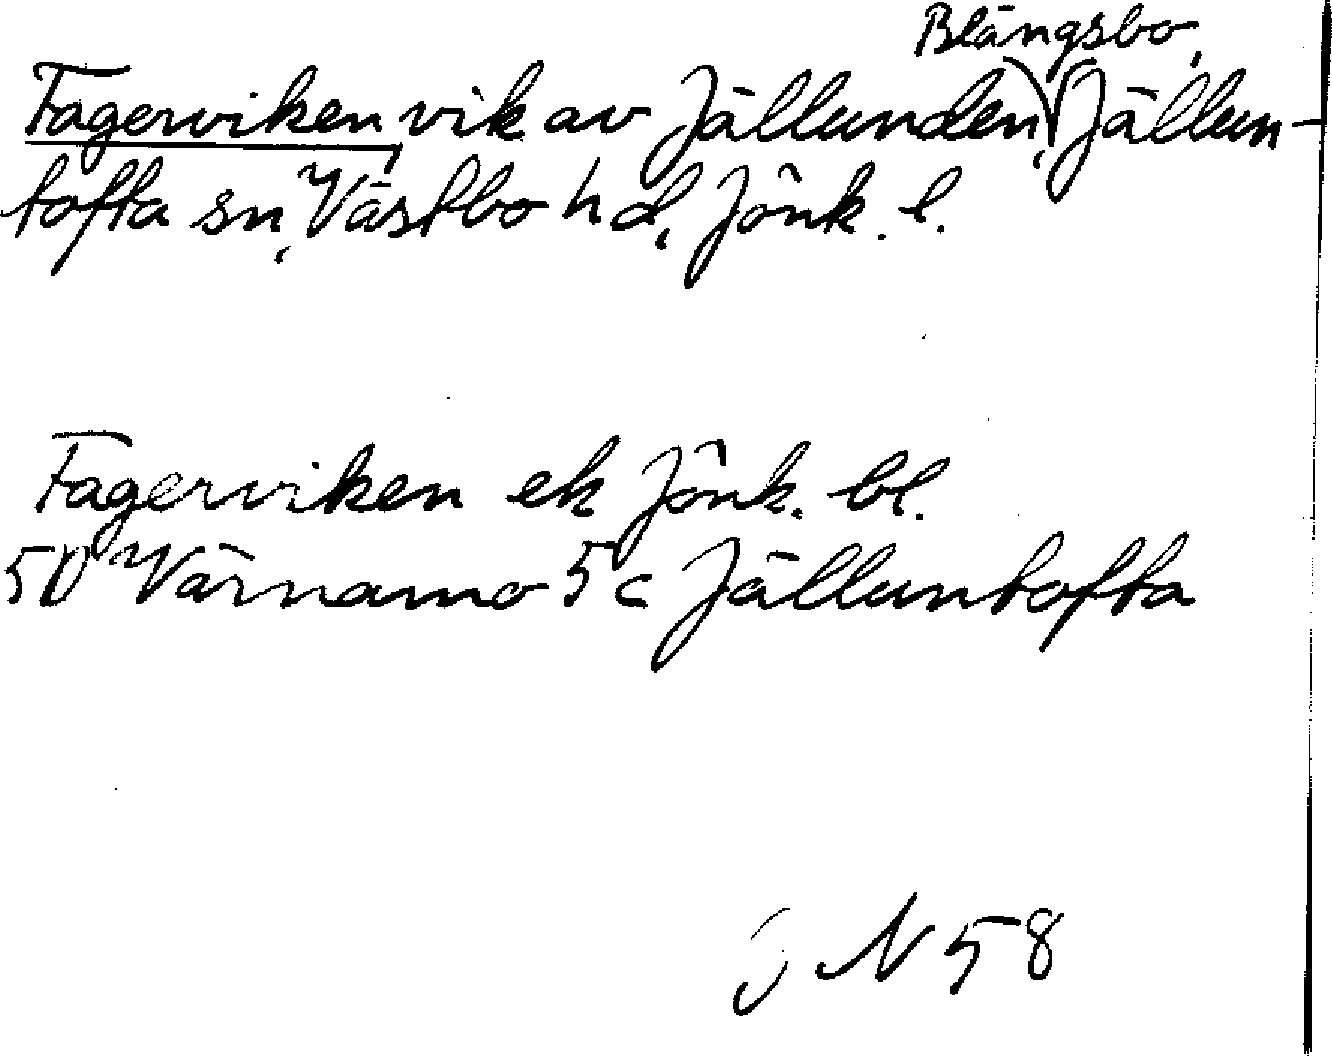 Blängsbo,
Fagerviken, vik av Jällunden, Jällun-
tofta sn, Västbo hd, Jönk. l.
Fagerviken ek Jönk. bl.
50 Värnamo 5c Jälluntofta
N 58